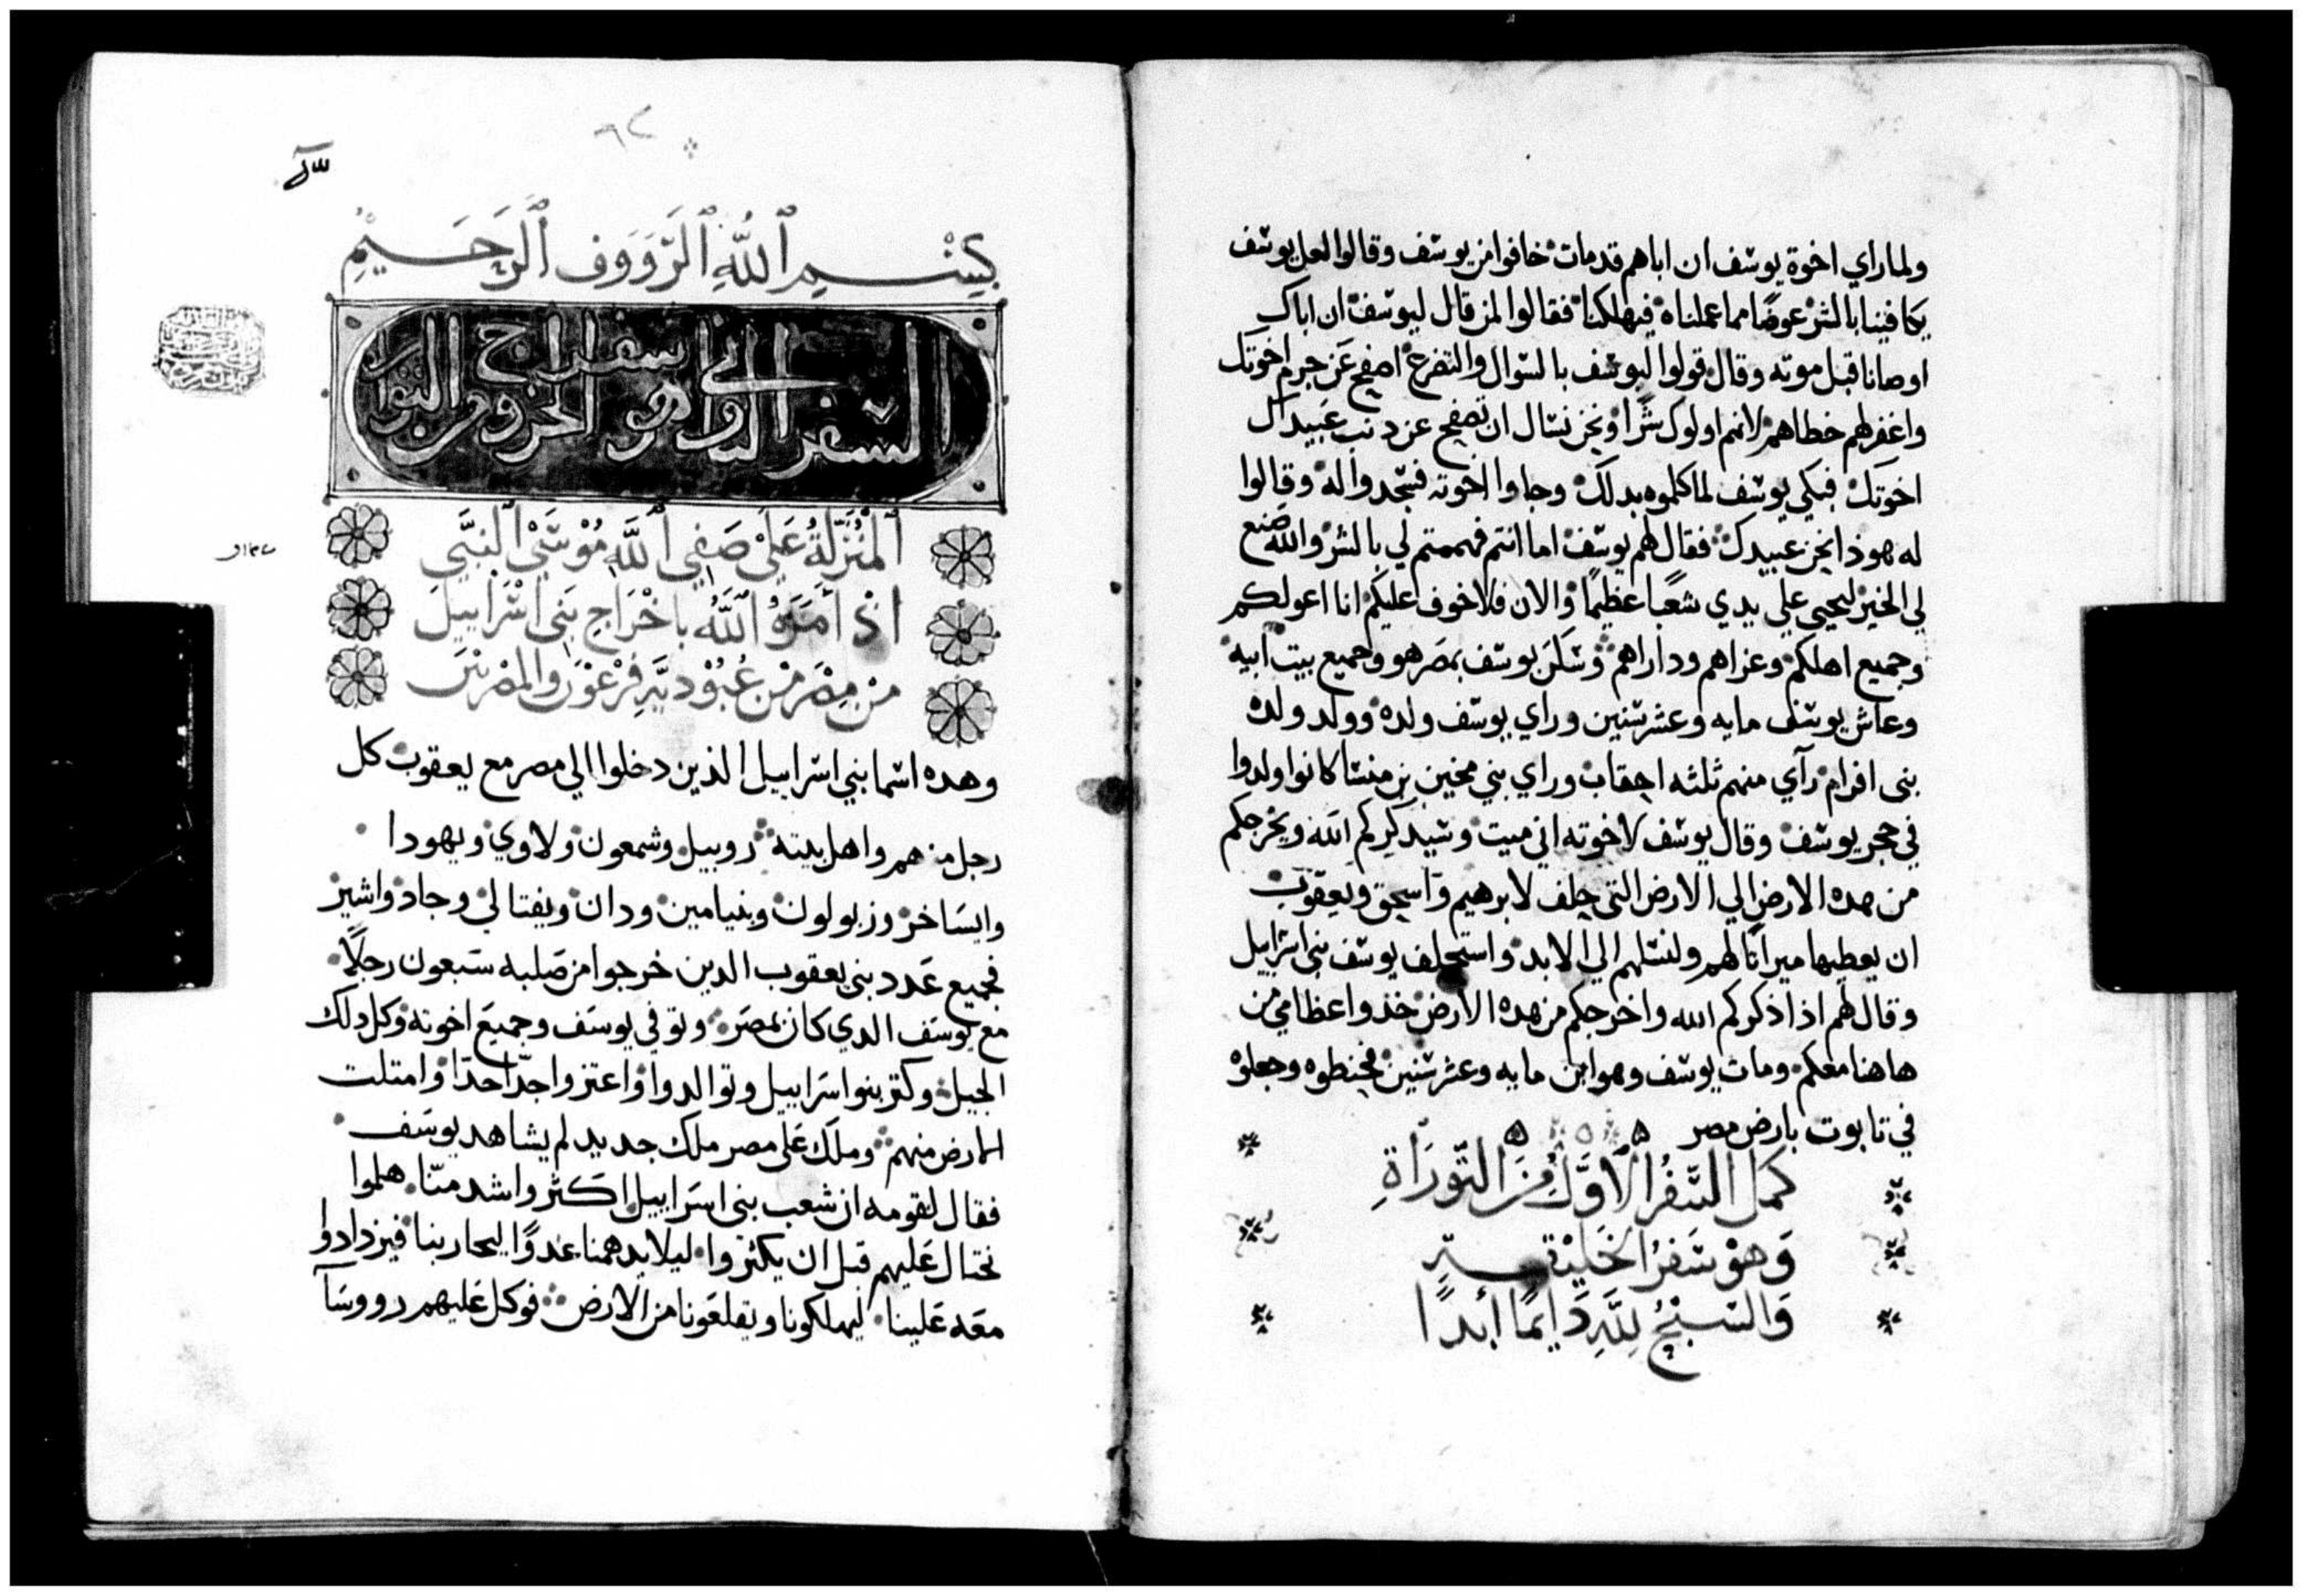 ولما راي اخوة يوسف ان اباهم قد مات خافوا من يوسف وقالوا لعل يوسف
يكافينا بالشر عوضا مما عملناه فيهلكنا فقالوا لمن قال ليوسف ان اباك
اوصانا قبل موته وقال قولوا ليوسف بالسوال والتضرع اصفح عن جرم اخوتك
واغفر لهم خطاهم لانهم اولوك شرا ونحن نسال ان تصفح عن دنب عبيد ال
اخوتك فبكي يوسف لما كلموه بدلك وجاوا اخوته فسجدوا له وقالوا
له هوذا نحن عبيدك فقال لهم يوسف اما انتم فهممتم لي بالشر والله صنع
لي الخير ليحيى علي يدي شعبا عظيما والان فلا خوف عليكم انا اعولكم
وجميع اهلكم وعزاهم وداراهم وسكن يوسف بمصر هو وجميع بيت ابيه
وعاش يوسف مايه وعشر سنين وراي يوسف ولده وولد ولده
بنى افرام رآي منهم ثلثه احقاب وراي بني مخين بن منسا كانوا ولدوا
في حجر يوسف وقال يوسف لاخوته اني ميت وسيدكركم الله ويخرجكم
من هده الارض الي الارض التى حلف لابرهيم واسحق ويعقوب
ان يعطيها ميراثا لهم ولنسلهم الي الابد واستحلف يوسف بني اسراييل
وقال لهم اذا ذكركم الله واخرجكم من هده الارض خذوا عظامي من
هاهنا معكم ومات يوسف وهو ابن مايه وعشر سنين فحنطوه وجعلوه
في تابوت بارض مصر
كمل السفر الاول من التوراة
وهو سفر الخليقة
والسبح لله دايما ابدا
٦٢
بسم الله الرووف الرحيم
السفر الثاني وهو سفر الخروج من التوراه
المنزلة على صفي الله موسى النبي
اذ امره الله باخراج بني اسراييل
من مصر من عبودية فرعون والمصريين
وهده اسما بني اسراييل الذين دخلوا الي مصر مع يعقوب كل
رجل منهم واهل بيته روبيل وشمعون ولاوي ويهودا
وايساخر وزبولون وبنيامين ودان ونفتالي وجاد واشير
فجميع عدد بني يعقوب الدين خرجوا من صلبه سبعون رجلا
مع يوسف الدي كان بمصر وتوفي يوسف وجميع اخوته وكل دلك
الجيل وكتر بنوا اسراييل وتوالدوا واعتزوا جدا جدا وامتلت
الارض منهم وملك على مصر ملك جديد لم يشاهد يوسف
فقال لقومه ان شعب بني اسراييل اكثر واشد منا هلموا
نحتال عليهم قبل ان يكثروا ليلا يدهمنا عدوا ليحاربنا فيزدادوا
معه علينا ليهلكونا ويقلعونا من الارض فوكل عليهم رووسآ